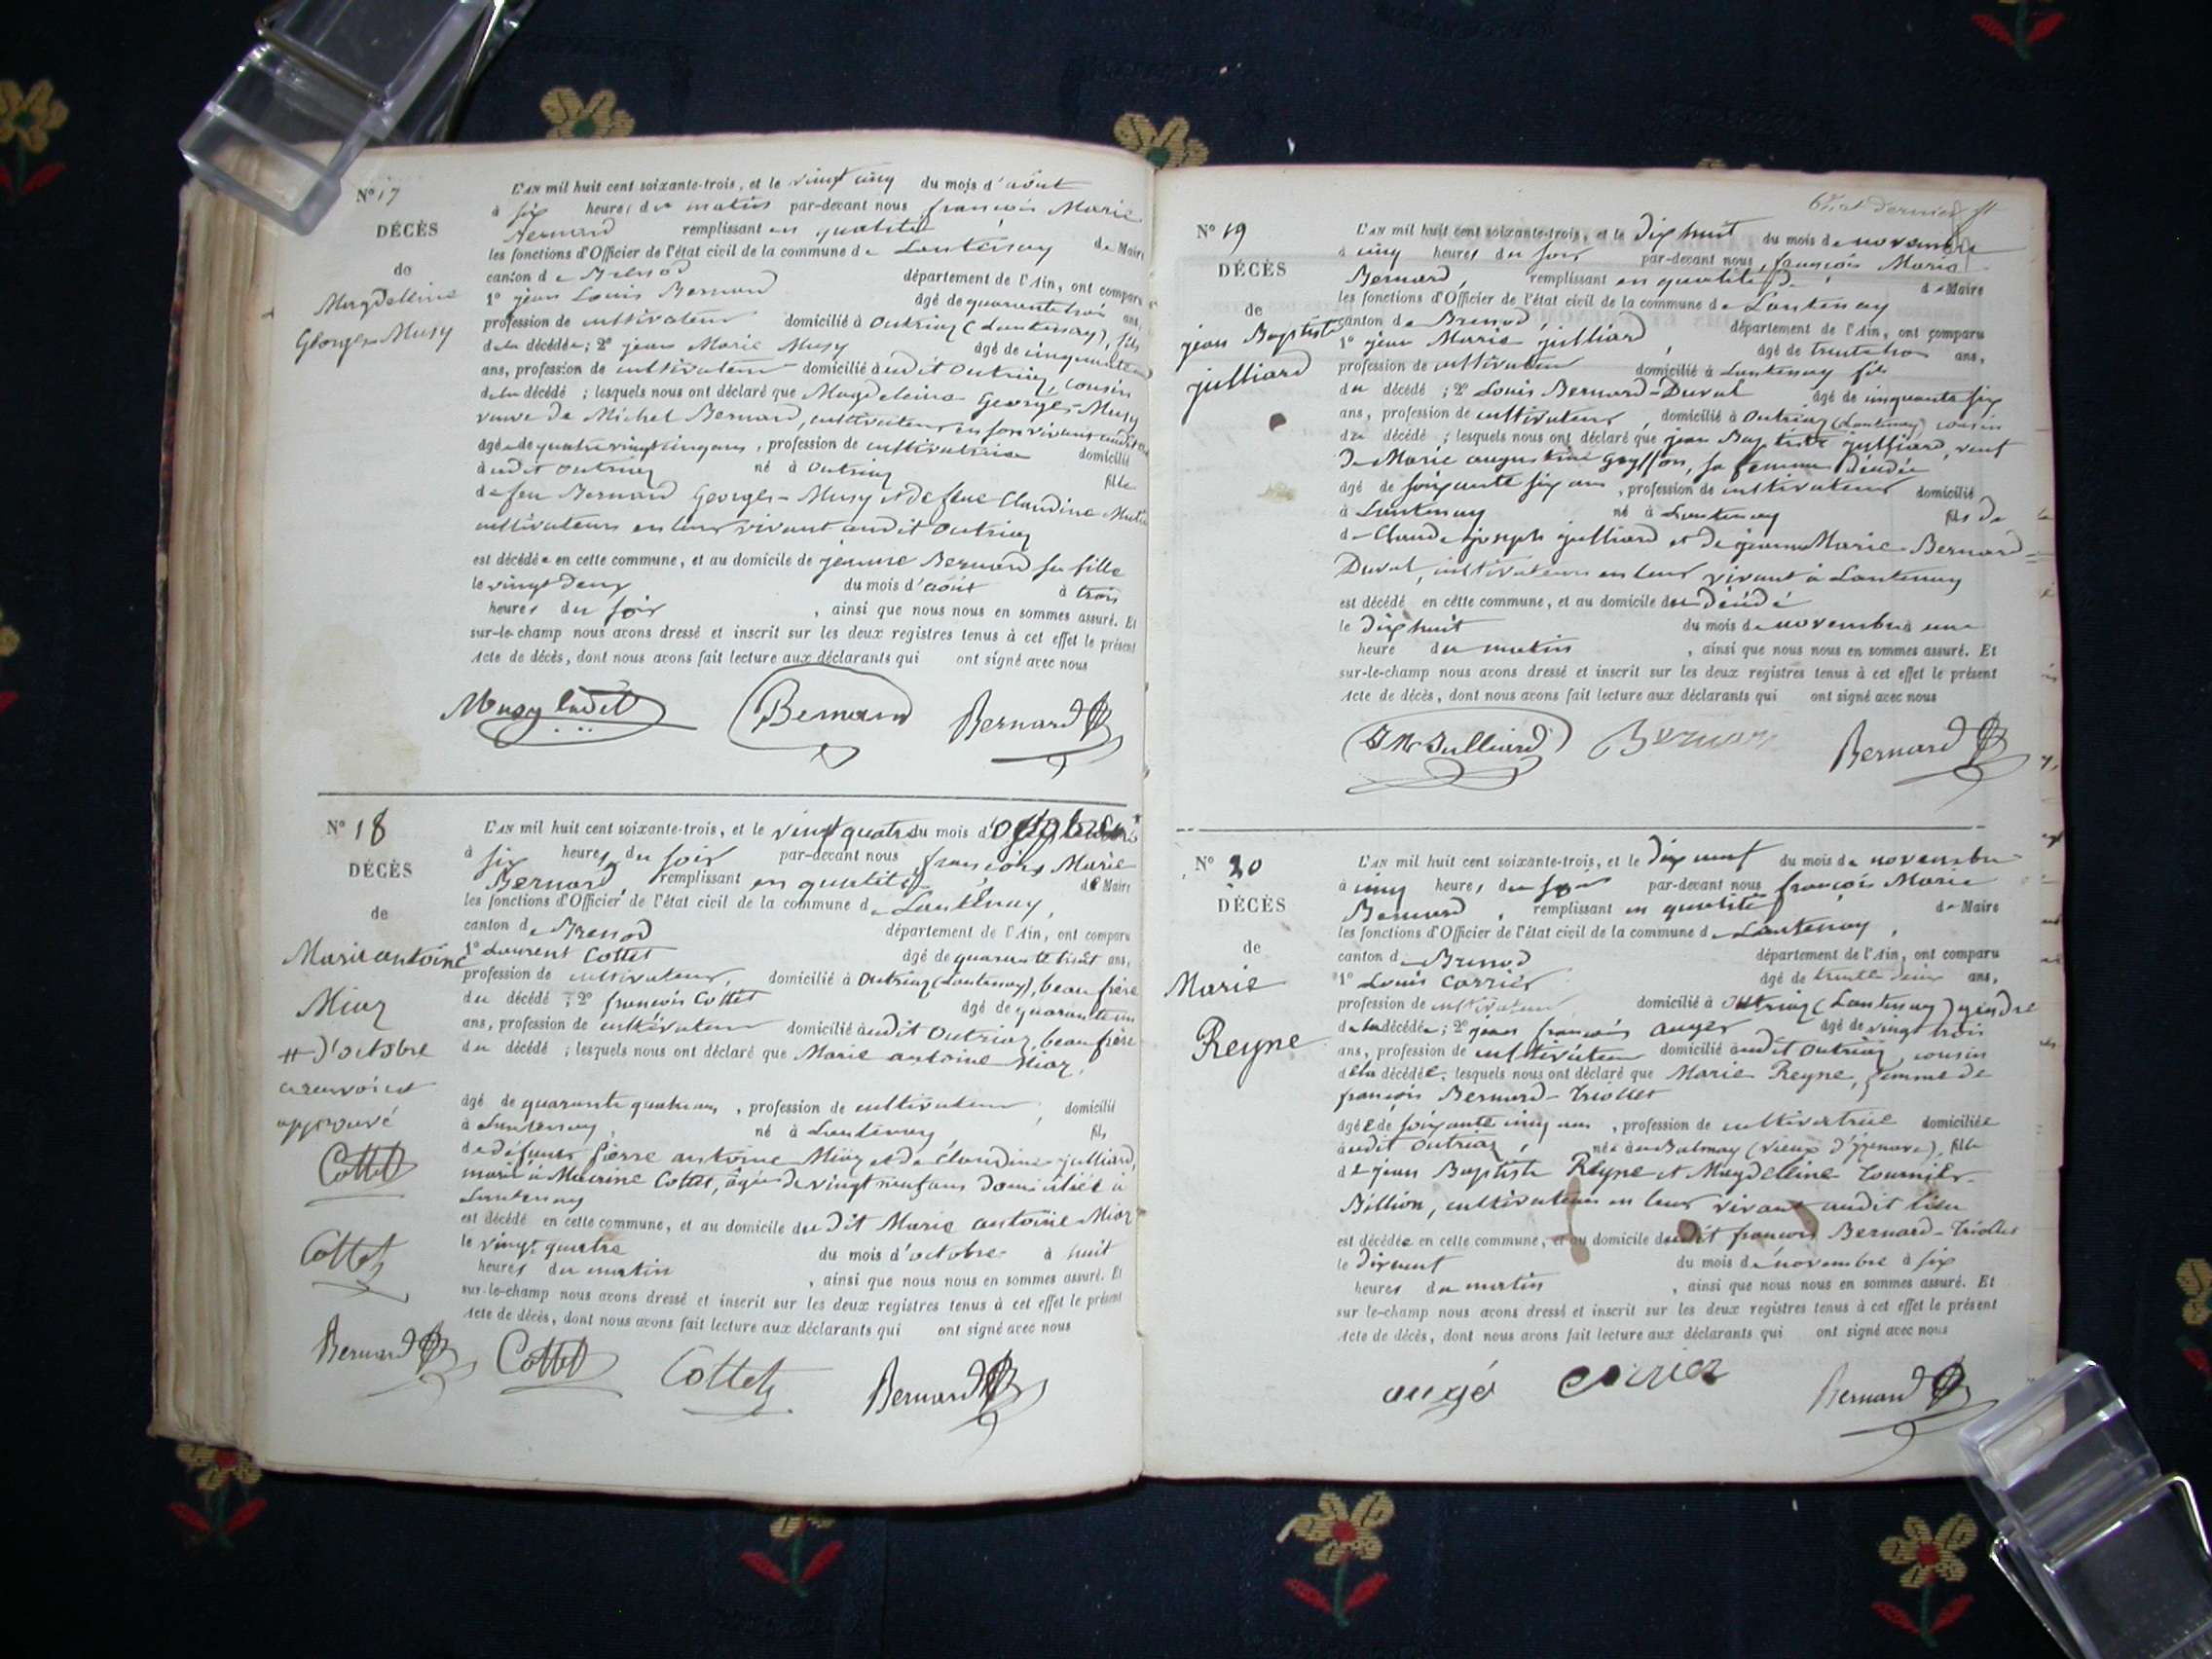 N° 17
DÉCÈS
de
Magdeleine
Georges-Musy
L'AN mil huit cent soixante-trois, et le vingt cinq du mois d'août
à six heures du matin par-devant nous françois Marie
Bernard remplissant en qualité de Maire
les fonctions d'Officier de l'état civil de la commune de Lantenay
canton de Brenod département de l'Ain, ont comparu
1° jean Louis Bernard âgé de quarante trois ans,
profession de cultivateur domicilié à Outriaz (Lantenay), fils
de la décédée; 2° jean Marie Musy âgé de
ans, profession de cultivateur domicilié audit Outriaz, cousin
de la décédé ; lesquels nous ont déclaré que Magdeleine Georges-Musy
veuve de Michel Bernard, cultivateur en son vivant audit
âgée de quatre vingt cinq ans, profession de cultivatrice domicilié
audit Outriaz né à Outriaz fille
de feu Bernard Georges-Musy et de feue Claudine
cultivateurs en leur vivant audit Outriaz
est décédée en cette commune, et au domicile de jeanne Bernard sa fille
le vingt deux du mois d'août à trois
heures du soir, ainsi que nous nous en sommes assuré. Et
sur-le-champ nous avons dressé et inscrit sur les deux registres tenus à cet effet le présent
Acte de décès, dont nous avons fait lecture aux déclarants qui ont signé avec nous
Musy cadet Bernard Bernard
N° 18
DÉCÈS
de
Marie antoine
Miaz
# d'octobre
a renvoi est
approuvé
Cottet
Cottet
Bernard
L'AN mil huit cent soixante-trois, et le vingt quatre du mois d'octobre
à six heures du soir par-devant nous françois Marie
Bernard, remplissant en qualité de Maire
les fonctions d'Officier de l'état civil de la commune de Lantenay,
canton de Brenod département de l'Ain, ont comparu
1° Laurent Cottet âgé de quarante huit ans,
profession de cultivateur, domicilié à Outriaz (Lantenay), beau frère
du décédé ; 2° françois Cottet âgé de quarante un
ans, profession de cultivateur domicilié audit Outriaz, beau frère
du décédé ; lesquels nous ont déclaré que Marie antoine Miaz,
âgé de quarante quatre ans, profession de cultivateur, domicilié
à Lantenay, né à Lantenay, fils
de défunts pierre antoine Miaz et de Claudine julliard,
marié à Maurine Cottet, âgée de vingt neuf ans domiciliée à
Lantenay
est décédé en cette commune, et au domicile du dit Marie antoine Miaz
le vingt quatre du mois d'octobre à huit
heures du matin, ainsi que nous nous en sommes assuré. Et
sur-le-champ nous avons dressé et inscrit sur les deux registres tenus à cet effet le présent
Acte de décès, dont nous avons fait lecture aux déclarants qui ont signé avec nous
Cottet Cottet Bernard
N° 19
DÉCÈS
de
jean Baptiste
julliard
L'AN mil huit cent soixante-trois, et le dix huit du mois de novembre
à cinq heures du soir par-devant nous, françois Marie
Bernard, remplissant en qualité de Maire
les fonctions d'Officier de l'état civil de la commune de Lantenay
canton de Brenod, département de l'Ain, ont comparu
1° jean Marie julliard, âgé de trente trois ans,
profession de cultivateur domicilié à Lantenay fils
du décédé ; 2° Louis Bernard-Duval âgé de cinquante six
ans, profession de cultivateur, domicilié à Outriaz (Lantenay) cousin
du décédé ; lesquels nous ont déclaré que jean Baptiste julliard, veuf
de Marie augustine Goyffon, sa femme décédée
âgé de soixante six ans, profession de cultivateur domicilié
à Lantenay né à Lantenay fils de
de Claude joseph julliard et de jeanne Marie Bernard-
Duval, cultivateurs en leur vivant à Lantenay
est décédé en cette commune, et au domicile du décédé
le dix huit du mois de novembre à une
heure du matin, ainsi que nous nous en sommes assuré. Et
sur-le-champ nous avons dressé et inscrit sur les deux registres tenus à cet effet le présent
Acte de décès, dont nous avons fait lecture aux déclarants qui ont signé avec nous
JM Julliard Bernard Bernard
N° 20
DÉCÈS
de
Marie
Reyne
L'AN mil huit cent soixante-trois, et le dix neuf du mois de novembre
à cinq heures du soir par-devant nous françois Marie
Bernard, remplissant en qualité de Maire
les fonctions d'Officier de l'état civil de la commune de Lantenay,
canton de Brenod département de l'Ain, ont comparu
1° Louis Carrier âgé de trente deux ans,
profession de cultivateur domicilié à Outriaz (Lantenay) gendre
de la décédée; 2° jean françois auger âgé de vingt trois
ans, profession de cultivateur domicilié audit Outriaz, cousin
de la décédée, lesquels nous ont déclaré que Marie Reyne, femme de
françois Bernard-Triollet
âgée de soixante cinq ans, profession de cultivatrice domiciliée
audit Outriaz, née au Balmay (Vieux d'Izenave), fille
de jean Baptiste Reyne et Magdeleine Tournier-
Billion, cultivateurs en leur vivant audit lieu
est décédée en cette commune, et au domicile dudit françois Bernard-Triollet
le dix neuf du mois de novembre à six
heures du matin, ainsi que nous nous en sommes assuré. Et
sur le-champ nous avons dressé et inscrit sur les deux registres tenus à cet effet le présent
Acte de décès, dont nous avons fait lecture aux déclarants qui ont signé avec nous
augé carrier Bernard